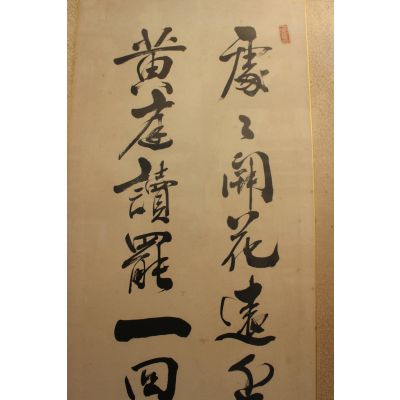 處々開花遠
黄庭讀罷一回